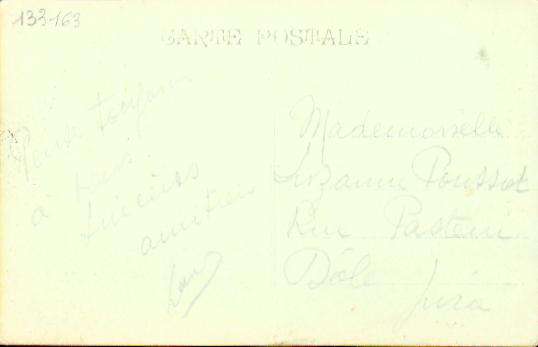 133-163
CARTE POSTALE
Pense toujours
à
sincères
amitiés
Mademoiselle
Suzanne Poussot
Rue Pasteur
Dôle
Jura